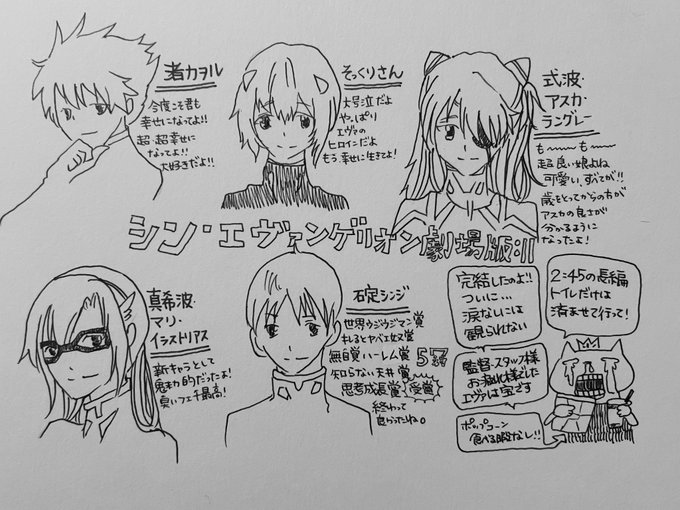 渚カヲル
今度こそ君も
幸せになってよ!!
超・超幸せに
なってよ!!
大好きだよ!!
そっくりさん
大号泣だよ
やっぱり
エヴァの
ヒロインだよ
もう、幸せに生きてよ!
式波・
アスカ・
ラングレー
も〜〜も〜〜
超良い娘よね
可愛い、すべてが!!
歳をとってからの方が
アスカの良さが
分かるように
なったよ!
シン・エヴァンゲリオン劇場版:||
真希波・
マリ・
イラストリアス
新キャラとして
魅力的だったよ!
臭いフェチ最高!
碇シンジ
世界ウジウジマン賞
キレるとヤバエ奴賞
無自覚ハーレム賞
知らない天井賞
思考成長賞
5冠
受賞
終わって
良かったね。
完結したのよ!!
ついに…
涙なしには
観られない
2:45の長編
トイレだけは
済ませて行って!
監督・スタッフ様
お疲れ様でした
エヴァは宝です
ポップコーン
食べる暇なし!!